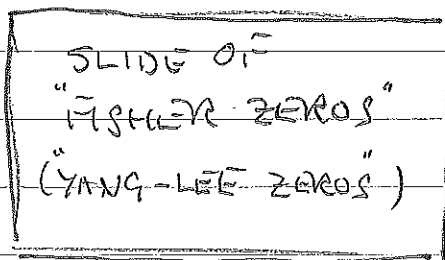 SLIDE OF
"FISHER ZEROS"
("YANG-LEE ZEROS")